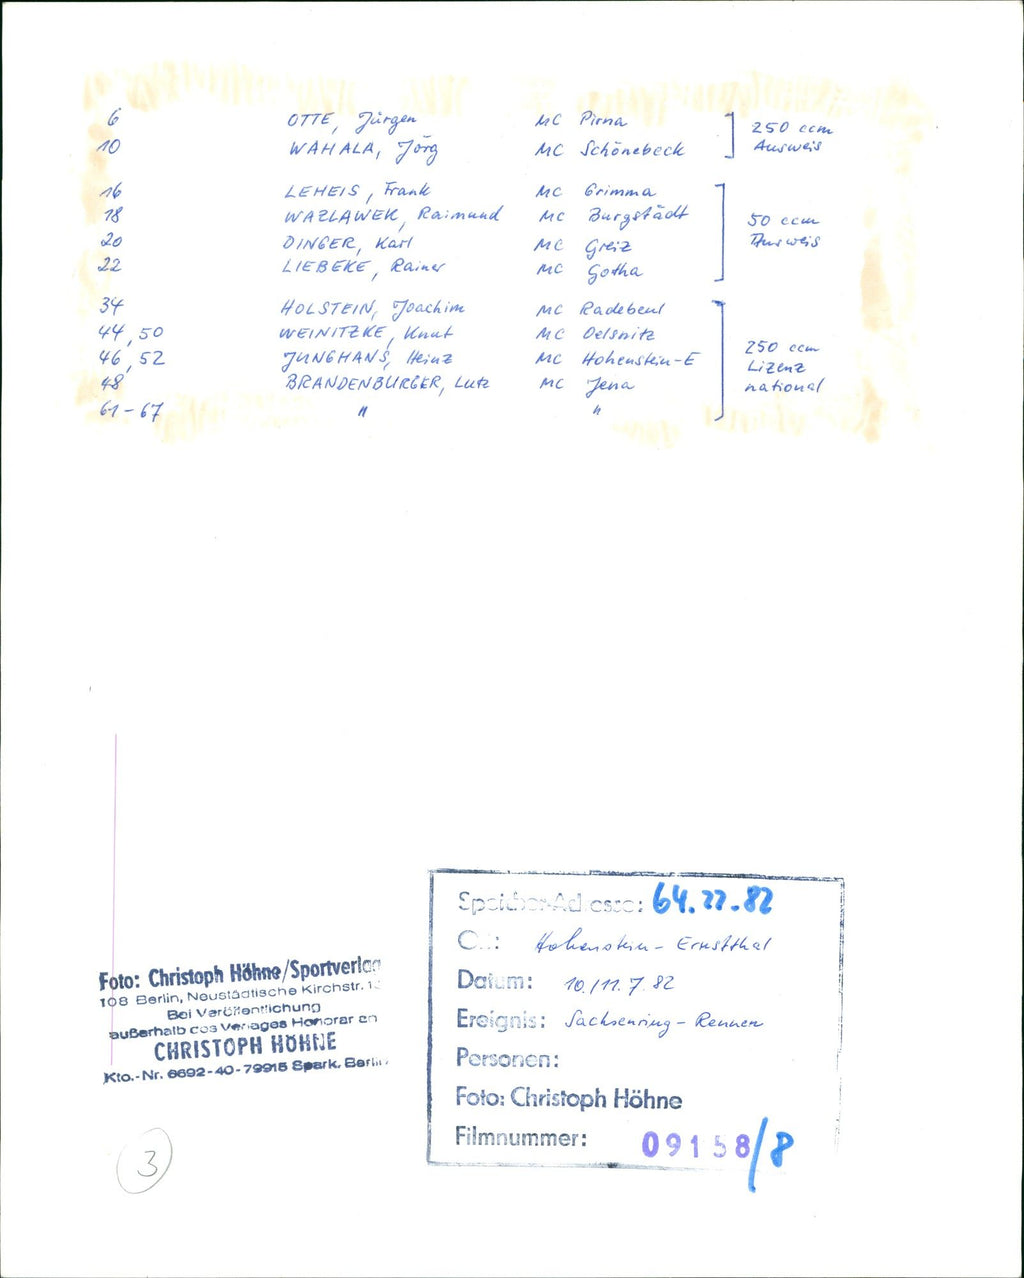 6 OTTE, Jürgen MC Pirna 250 ccm
10 WAHALA, Jörg MC Schönebeck Ausweis
16 LEHEIS, Frank MC Grimma
18 WAZLAWEK, Raimund MC Burgstädt 50 ccm
20 DINGER, Karl MC Greiz Ausweis
22 LIEBEKE, Rainer MC Gotha
34 HOLSTEIN, Joachim MC Radebeul
44, 50 WEINITZKE, Knut MC Oelsnitz 250 ccm
46, 52 JUNGHANS, Heinz MC Hohenstein-E Lizenz
48 BRANDENBURGER, Lutz MC Jena national
61-67 " "
Speicher-Adresse: 64.22.82
Ort: Hohenstein-Ernstthal
Datum: 10./11.7.82
Ereignis: Sachsenring-Rennen
Personen:
Foto: Christoph Höhne
Filmnummer: 09158/8
Foto: Christoph Höhne/Sportverlag
108 Berlin, Neustädtische Kirchstr.
Bei Veröffentlichung
außerhalb des Verlages Honorar an
CHRISTOPH HÖHNE
Kto.-Nr. 6692-40-79915 Spark. Berlin
3